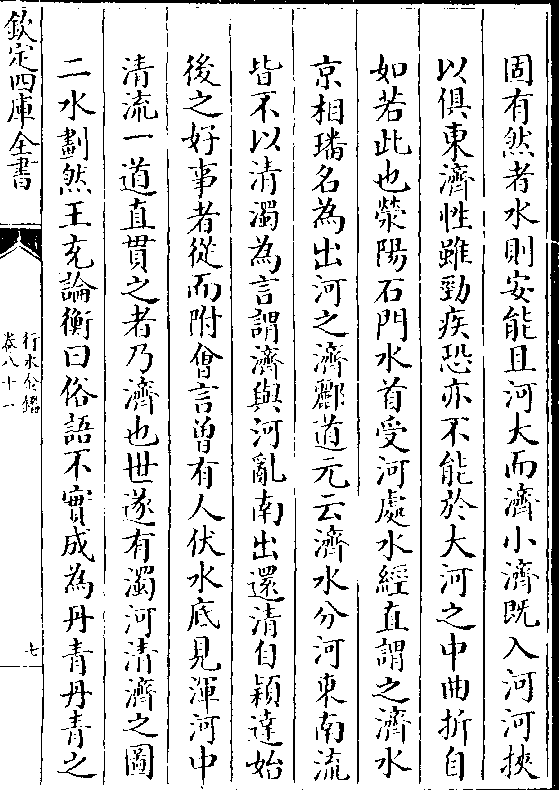 固有然者水則安能且河大而濟小濟既入河河挾
以俱東濟性雖勁疾恐亦不能於大河之中曲折自
如若此也滎陽石門水首受河處水經直謂之濟水
京相璠名為出河之濟酈道元云濟水分河東南流
皆不以清濁為言謂濟與河亂南出還清自穎達始
後之好事者從而附會言曽有人伏水底見渾河中
清流一道直貫之者乃濟也世遂有濁河清濟之圖
二水劃然王充論衡曰俗語不實成為丹青丹青之
欽定四庫全書
行水金鑑
卷八十一
七